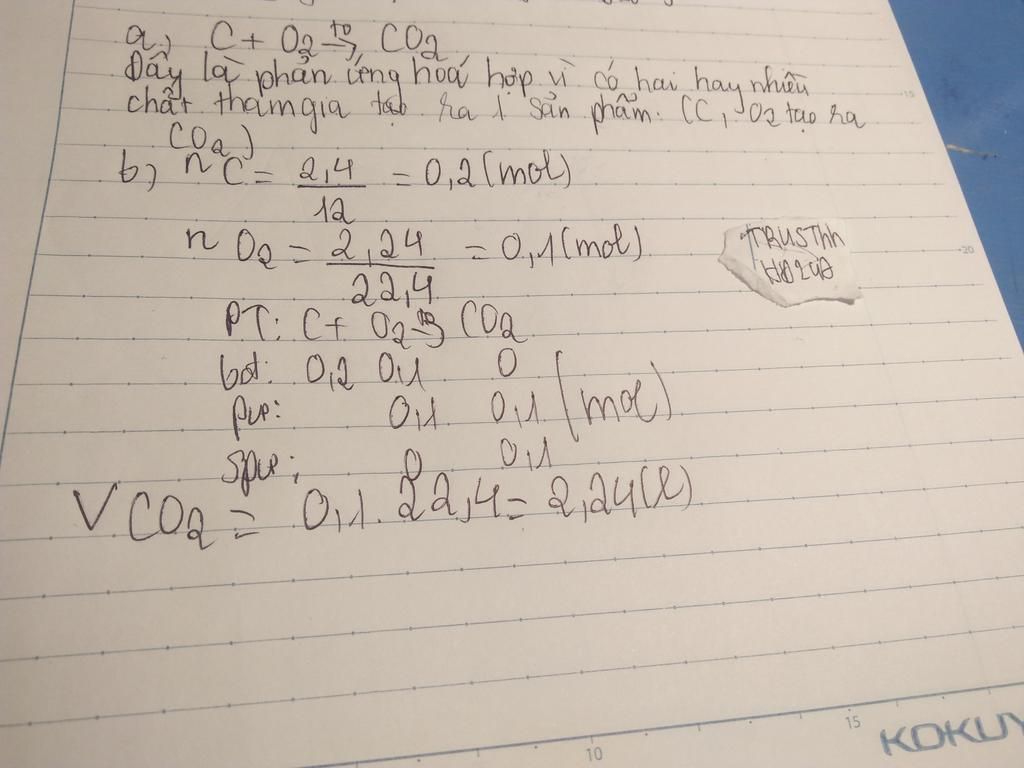 a, C + O2 →to CO2
Đấy là phản ứng hoá hợp vì có hai hay nhiều
chất tham gia tạo ra 1 sản phẩm. (C, O2 tạo ra
CO2)
b) nC = 2,4/12 = 0,2 (mol)
nO2 = 2,24/22,4 = 0,1 (mol)
TRUSThh
PT: C + O2 →to CO2
bđ: 0,2 0,1 0
pư: 0,1 0,1 (mol)
spư: 0 0,1
VCO2 = 0,1. 22,4 = 2,24 (l)
20
15
10
KOKUY